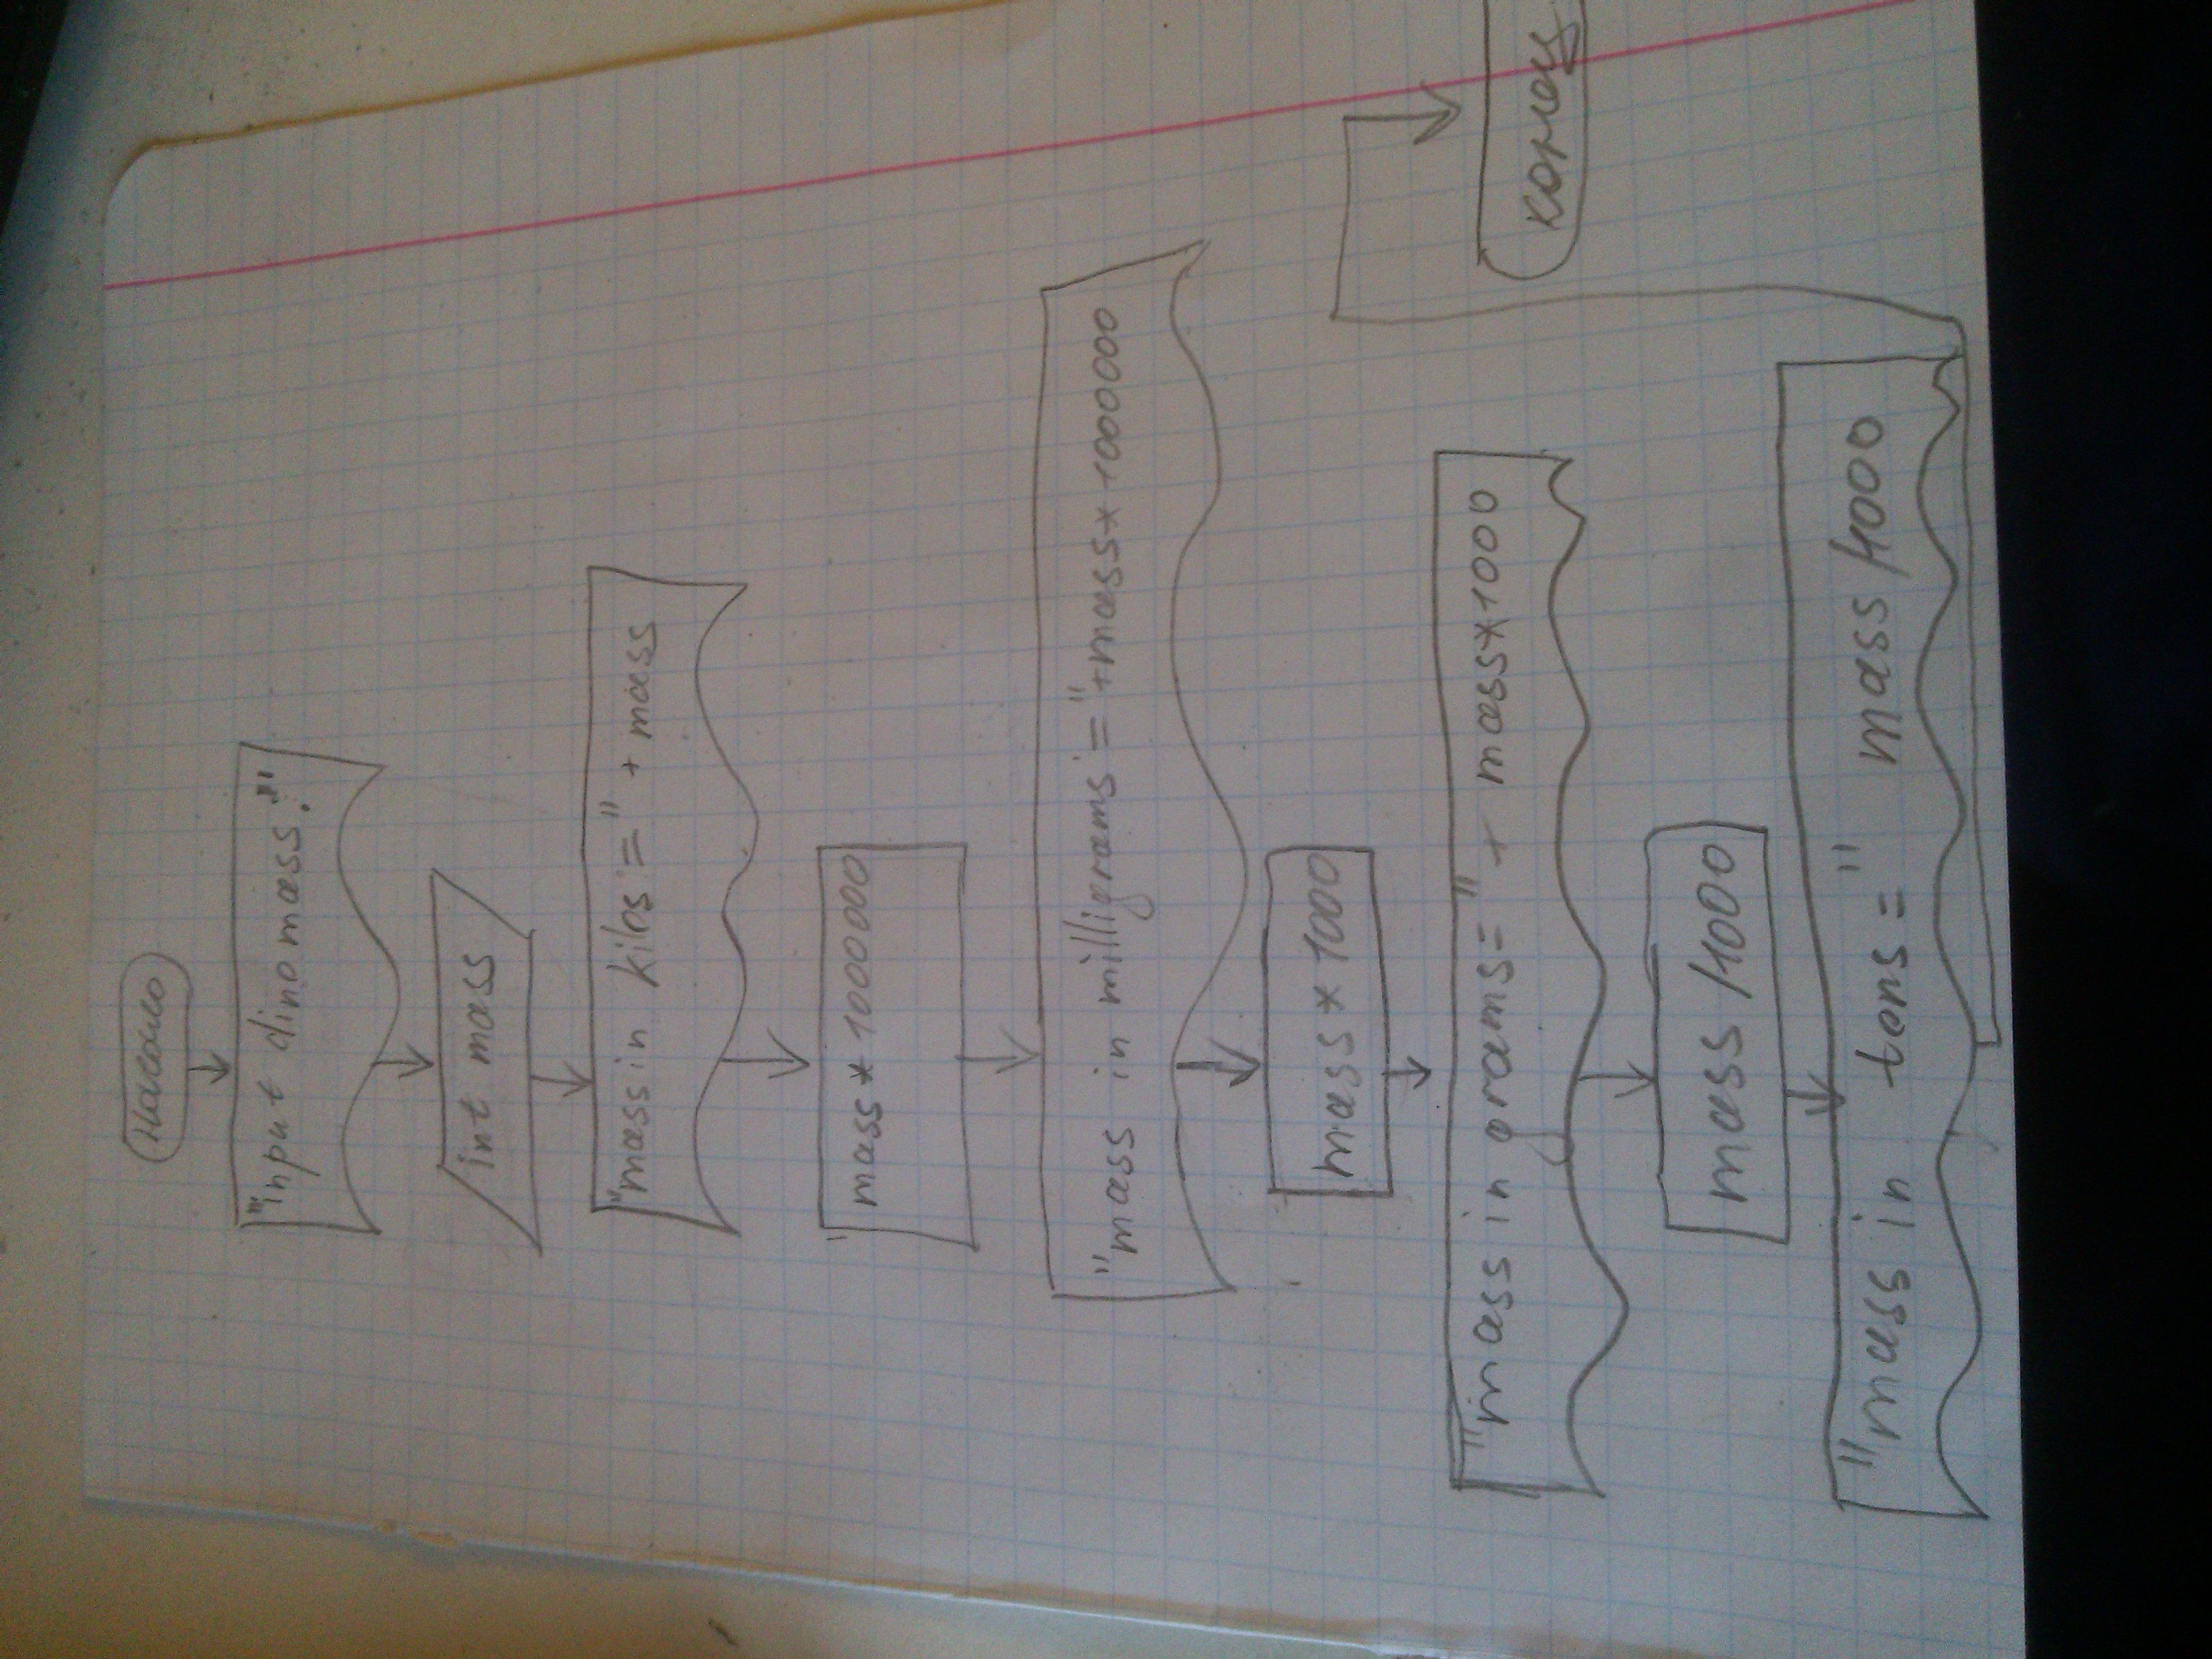 начало
"input dino mass:"
int mass
"mass in kilos=" + mass
mass * 1000000
"mass in milligrams="+mass*1000000
mass * 1000
"mass in grams=" + mass*1000
mass/1000
"mass in tons=" mass/1000
конец